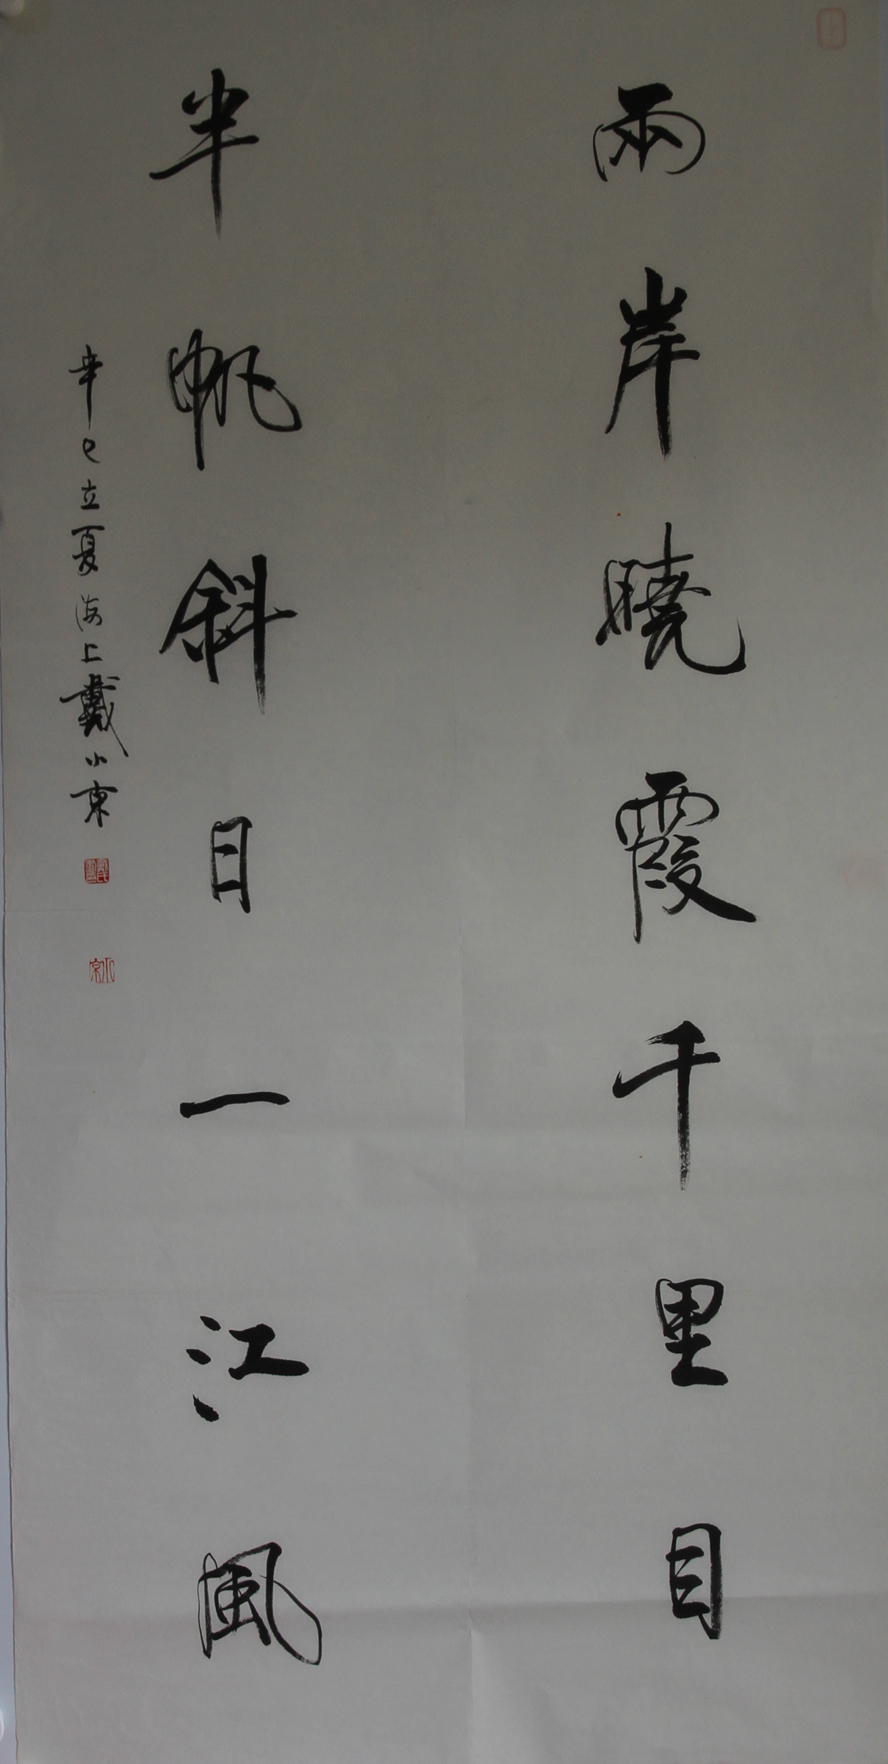 兩岸曉霞千里目
半帆斜日一江風
辛巳立夏海上戴小京